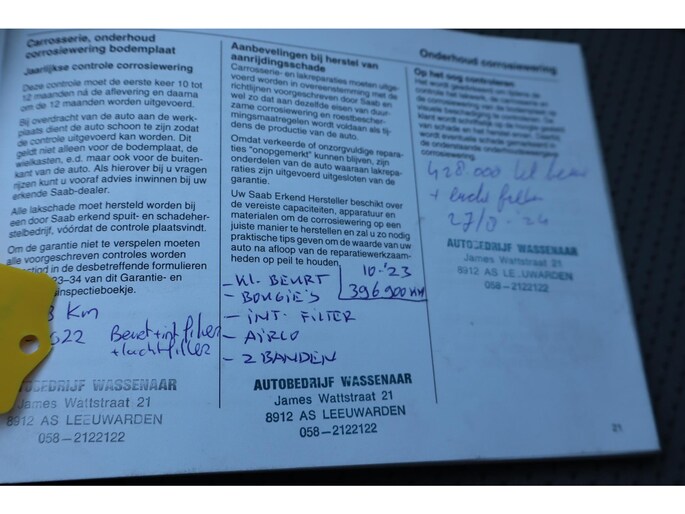 Carrosserie, onderhoud
corrosiewering bodemplaat
Jaarlijkse controle corrosiewering
Deze controle moet de eerste keer 10 tot
12 maanden ná de aflevering en daarna
om de 12 maanden worden uitgevoerd.
Bij overdracht van de auto aan de werk-
plaats dient de auto schoon te zijn zodat
de controle uitgevoerd kan worden. Dit
geldt niet alleen voor de bodemplaat, de
wielkasten, e.d. maar ook voor de buiten-
kant van de auto. Als hierover bij u vragen
rijzen kunt u vooraf advies inwinnen bij uw
erkende Saab-dealer.
Alle lakschade moet hersteld worden bij
een door Saab erkend spuit- en schadeher-
stelbedrijf, vóórdat de controle plaatsvindt.
Om de garantie niet te verspelen moeten
alle voorgeschreven controles worden
in de desbetreffende formulieren
23–34 van dit Garantie- en
inspectieboekje.
Km
22 Beurt + int filter
+ luchtfilter
AUTOBEDRIJF WASSENAAR
James Wattstraat 21
8912 AS LEEUWARDEN
058–2122122
Aanbevelingen bij herstel van
aanrijdingsschade
Carrosserie- en lakreparaties moeten uitge-
voerd worden in overeenstemming met de
richtlijnen voorgeschreven door Saab en
wel zo dat aan dezelfde eisen van duur-
zame corrosiewering en roestbescher-
mingsmaatregelen wordt voldaan als tij-
dens de productie van de auto.
Omdat verkeerde of onzorgvuldige repara-
ties "onopgemerkt" kunnen blijven, zijn
onderdelen van de auto waaraan lakrepa-
raties zijn uitgevoerd uitgesloten van de
garantie.
Uw Saab Erkend Hersteller beschikt over
de vereiste capaciteiten, apparatuur en
materialen om de corrosiewering op een
juiste manier te herstellen en zal u zo nodig
praktische tips geven om de waarde van uw
auto na afloop van de reparatiewerkzaam-
heden op peil te houden.
- KL. BEURT
10-'23
396900 KM
- BOUGIE'S
- INT. FILTER
- AIRCO
- 2 BANDEN
AUTOBEDRIJF WASSENAAR
James Wattstraat 21
8912 AS LEEUWARDEN
058–2122122
Onderhoud corrosiewering
Op het oog controleren
corrosiewering.
428 000
+
AUTOBEDRIJF WASSENAAR
James Wattstraat 21
8912 AS LEEUWARDEN
058–2122122
21